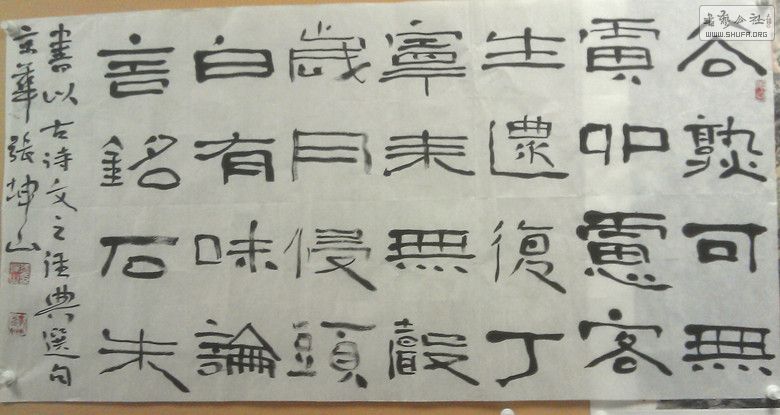 谷熟可無
寅卯慮客
生復丁
寧未無穀
歲月侵頭
白有味論
言銘石朱
書以古诗文之典選句
京華張坤山
书法公社
WWW.SHUFA.ORG